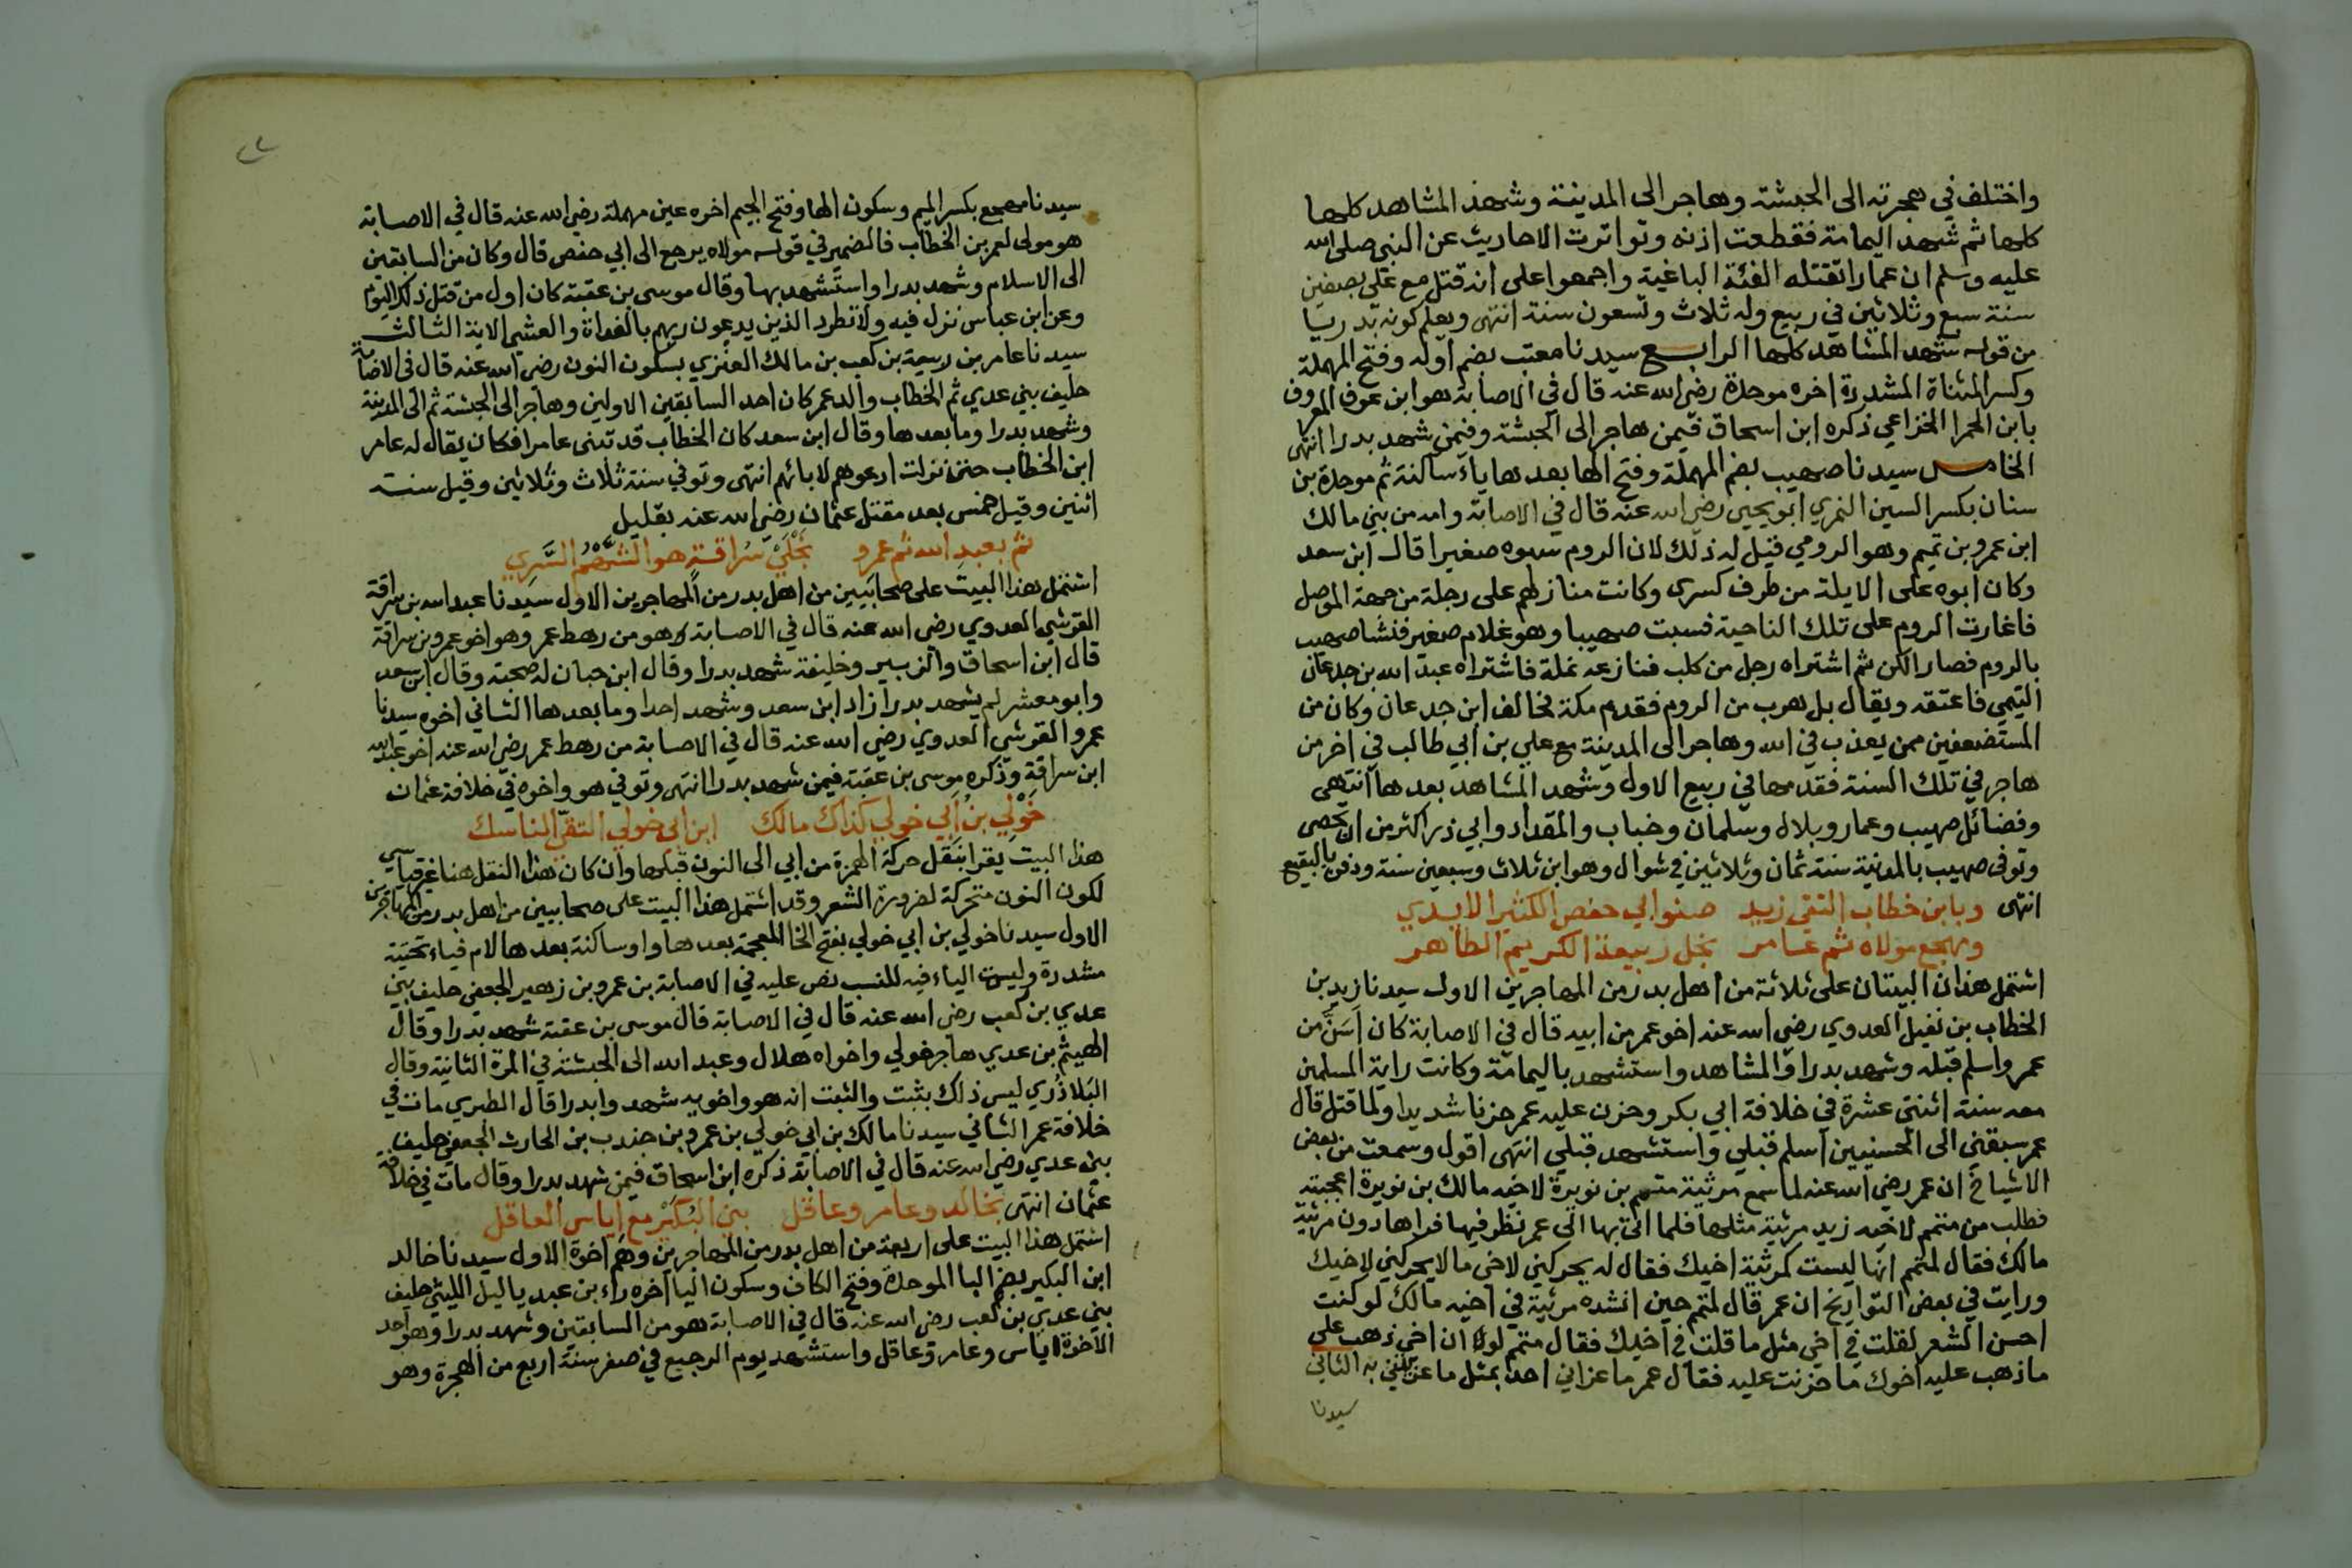 واختلف في هجرته الى الحبشة وهاجر الى المدينة وشهد المشاهد كلها
كلها ثم شهد اليمامة فقطعت اذنه وتواترت الاحاديث عن النبي صلى الله
عليه وسلم ان عمارا تقتله الفئة الباغية واجمعوا على انه قتل مع علي بصفين
سنة سبع وثلاثين في ربيع وله ثلاث وتسعون سنة انتهى ويعلم كونه بدريا
من قوله شهد المشاهد كلها الرابع سيدنا معتب بضم اوله وفتح المهملة
وكسر المثناة المشددة اخره موحدة رضي الله عنه قال في الاصابة هو ابن عوف المعروف
بابن الحمرا الخزاعي ذكره ابن اسحاق فيمن هاجر الى الحبشة وفيمن شهد بدرا انتهى
الخامس سيدنا صهيب بضم المهملة وفتح الها بعدها ياء ساكنة ثم موحدة بن
سنان بكسر السين النمري ابو يحيى رضي الله عنه قال في الاصابة وامه من بني مالك
ابن عمرو بن تميم وهو الرومي قيل له ذلك لان الروم سبوه صغيرا قال ابن سعد
وكان ابوه على الايلة من طرف كسرى وكانت منازلهم على دجلة من جهة الموصل
فاغارت الروم على تلك الناحية فسبت صهيبا وهو غلام صغير فنشا صهيب
بالروم فصار الكن ثم اشتراه رجل من كلب فباعه بمكة فاشتراه عبد الله بن جدعان
التيمي فاعتقه ويقال بل هرب من الروم فقدم مكة فحالف ابن جدعان وكان من
المستضعفين ممن يعذب في الله وهاجر الى المدينة مع علي بن ابي طالب في اخر من
هاجر في تلك السنة فقدمها في ربيع الاول وشهد المشاهد بعدها انتهى
وفضائل صهيب وعمار وبلال وسلمان وخباب والمقداد وابي ذر اكثر من ان تحصى
وتوفى صهيب بالمدينة سنة ثمان وثلاثين في شوال وهو ابن ثلاث وسبعين سنة ودفن بالبقيع
انتهى وبابن خطاب التقي زيد صنو ابي حفص الكثير الايدي
ومهجع مولاه ثم عامر نجل ربيعة الكريم الطاهر
اشتمل هذان البيتان على ثلاثة من اهل بدر من المهاجرين الاول سيدنا زيد بن
الخطاب بن نفيل العدوي رضي الله عنه اخو عمر من ابيه قال في الاصابة كان اسَنَّ من
عمر واسلم قبله وشهد بدرا والمشاهد واستشهد باليمامة وكانت راية المسلمين
معه سنة اثنتى عشرة في خلافة ابي بكر وحزن عليه عمر حزنا شديدا ولما قتل قال
عمر سبقني الى الحسنيين اسلم قبلي واستشهد قبلي انتهى اقول وسمعت من بعض
الاشياخ ان عمر رضي الله عنه لما سمع مرثية متمم بن نويرة لاخيه مالك بن نويرة اعجبته
فطلب من متمم لاخيه زيد مرثية مثلها فلما اتى بها الى عمر نظر فيها فراها دون مرثية
مالك فقال لمتمم انها ليست كمرثية اخيك فقال له يحركني لاخي مالا يحركني لاخيك
ورايت في بعض التواريخ ان عمر قال لمتمم حين انشده مرثية في اخيه مالك لو كنت
احسن الشعر لقلت في اخي مثل ما قلت في اخيك فقال متمم لولا ان اخي ذهب على
ما ذهب عليه اخوك ما حزنت عليه فقال عمر ما عزاني احد بمثل ما عزيتني به الثاني
سيدنا
سيدنا مهجع بكسر الميم وسكون الها وفتح الجيم اخره عين مهملة رضي الله عنه قال في الاصابة
هو مولى لعمر بن الخطاب فالضمير في قوله مولاه يرجع الى ابي حفص قال وكان من السابقين
الى الاسلام وشهد بدرا واستشهد بها وقال موسى بن عقبة كان اول من قتل ذلك اليوم
وعن ابن عباس نزل فيه ولا تطرد الذين يدعون ربهم بالغداة والعشي الاية الثالث
سيدنا عامر بن ربيعة بن كعب بن مالك العنزي بسكون النون رضي الله عنه قال في الاصابة
حليف بني عدي ثم الخطاب والد عمر كان احد السابقين الاولين وهاجر الى الحبشة ثم الى المدينة
وشهد بدرا وما بعدها وقال ابن سعد كان الخطاب قد تبنى عامرا فكان يقال له عامر
ابن الخطاب حتى نزلت ادعوهم لابائهم انتهى وتوفي سنة ثلاث وثلاثين وقيل سنة
اثنين وقيل خمس بعد مقتل عثمان رضي الله عنه بقليل
ثم بعبد الله ثم عمرو نجْلَيْ سُراقةٍ هو الشَّهْمُ السَّرِي
اشتمل هذا البيت على صحابيين من اهل بدر من المهاجرين الاول سيدنا عبد الله بن سراقة
القرشي العدوي رضي الله عنه قال في الاصابة وهو من رهط عمر وهو اخو عمرو بن سراقة
قال ابن اسحاق والزبير وخليفة شهد بدرا وقال ابن حبان له صحبة وقال ابن سعد
وابو معشر لم يشهد بدرا زاد ابن سعد وشهد احدا وما بعدها الثاني اخوه سيدنا
عمرو القرشي العدوي رضي الله عنه قال في الاصابة من رهط عمر رضي الله عنه اخو عبد الله
ابن سراقة وذكره موسى بن عقبة فيمن شهد بدرا انتهى وتوفي هو واخوه في خلافة عثمان
خَوْلِي بنُ أبي خولي كذاك مالك ابن ابي خولي التقيّ الناسك
هذا البيت يقرا بنقل حركة الهمزة من ابي الى النون قبلها وان كان هذا النقل هنا غير قياسي
لكون النون متحركة لضرورة الشعر وقد اشتمل هذا البيت على صحابيين من اهل بدر من المهاجرين
الاول سيدنا خولي بن ابي خولي بفتح الخا المعجمة بعدها واو ساكنة بعدها لام فياء تحتية
مشددة وليست الياء فيه للنسب نص عليه في الاصابة بن عمرو بن زهير الجعفي حليف بني
عدي بن كعب رضي الله عنه قال في الاصابة قال موسى بن عقبة شهد بدرا وقال
الهيثم بن عدي هاجر خولي واخواه هلال وعبد الله الى الحبشة في المرة الثانية وقال
البَلاذُري ليس ذلك بثبت والثبت انه هو واخويه شهدوا بدرا قال الطبري مات في
خلافة عمر الثاني سيدنا مالك بن ابي خولي بن عمرو بن جندب بن الحارث الجعفي حليف
بني عدي رضي الله عنه قال في الاصابة ذكره ابن اسحاق فيمن شهد بدرا وقال مات في خلافة
عثمان انتهى بخالد وعامر وعاقل بني البُكَيْر مع إياس العاقل
اشتمل هذا البيت على اربعة من اهل بدر من المهاجرين وهم اخوة الاول سيدنا خالد
ابن البكير بضم البا الموحدة وفتح الكاف وسكون اليا اخره راء بن عبد ياليل الليثي حليف
بني عدي بن كعب رضي الله عنه قال في الاصابة هو من السابقين وشهد بدرا وهو احد
الاخوة اياس وعامر وعاقل واستشهد يوم الرجيع في صفر سنة اربع من الهجرة وهو